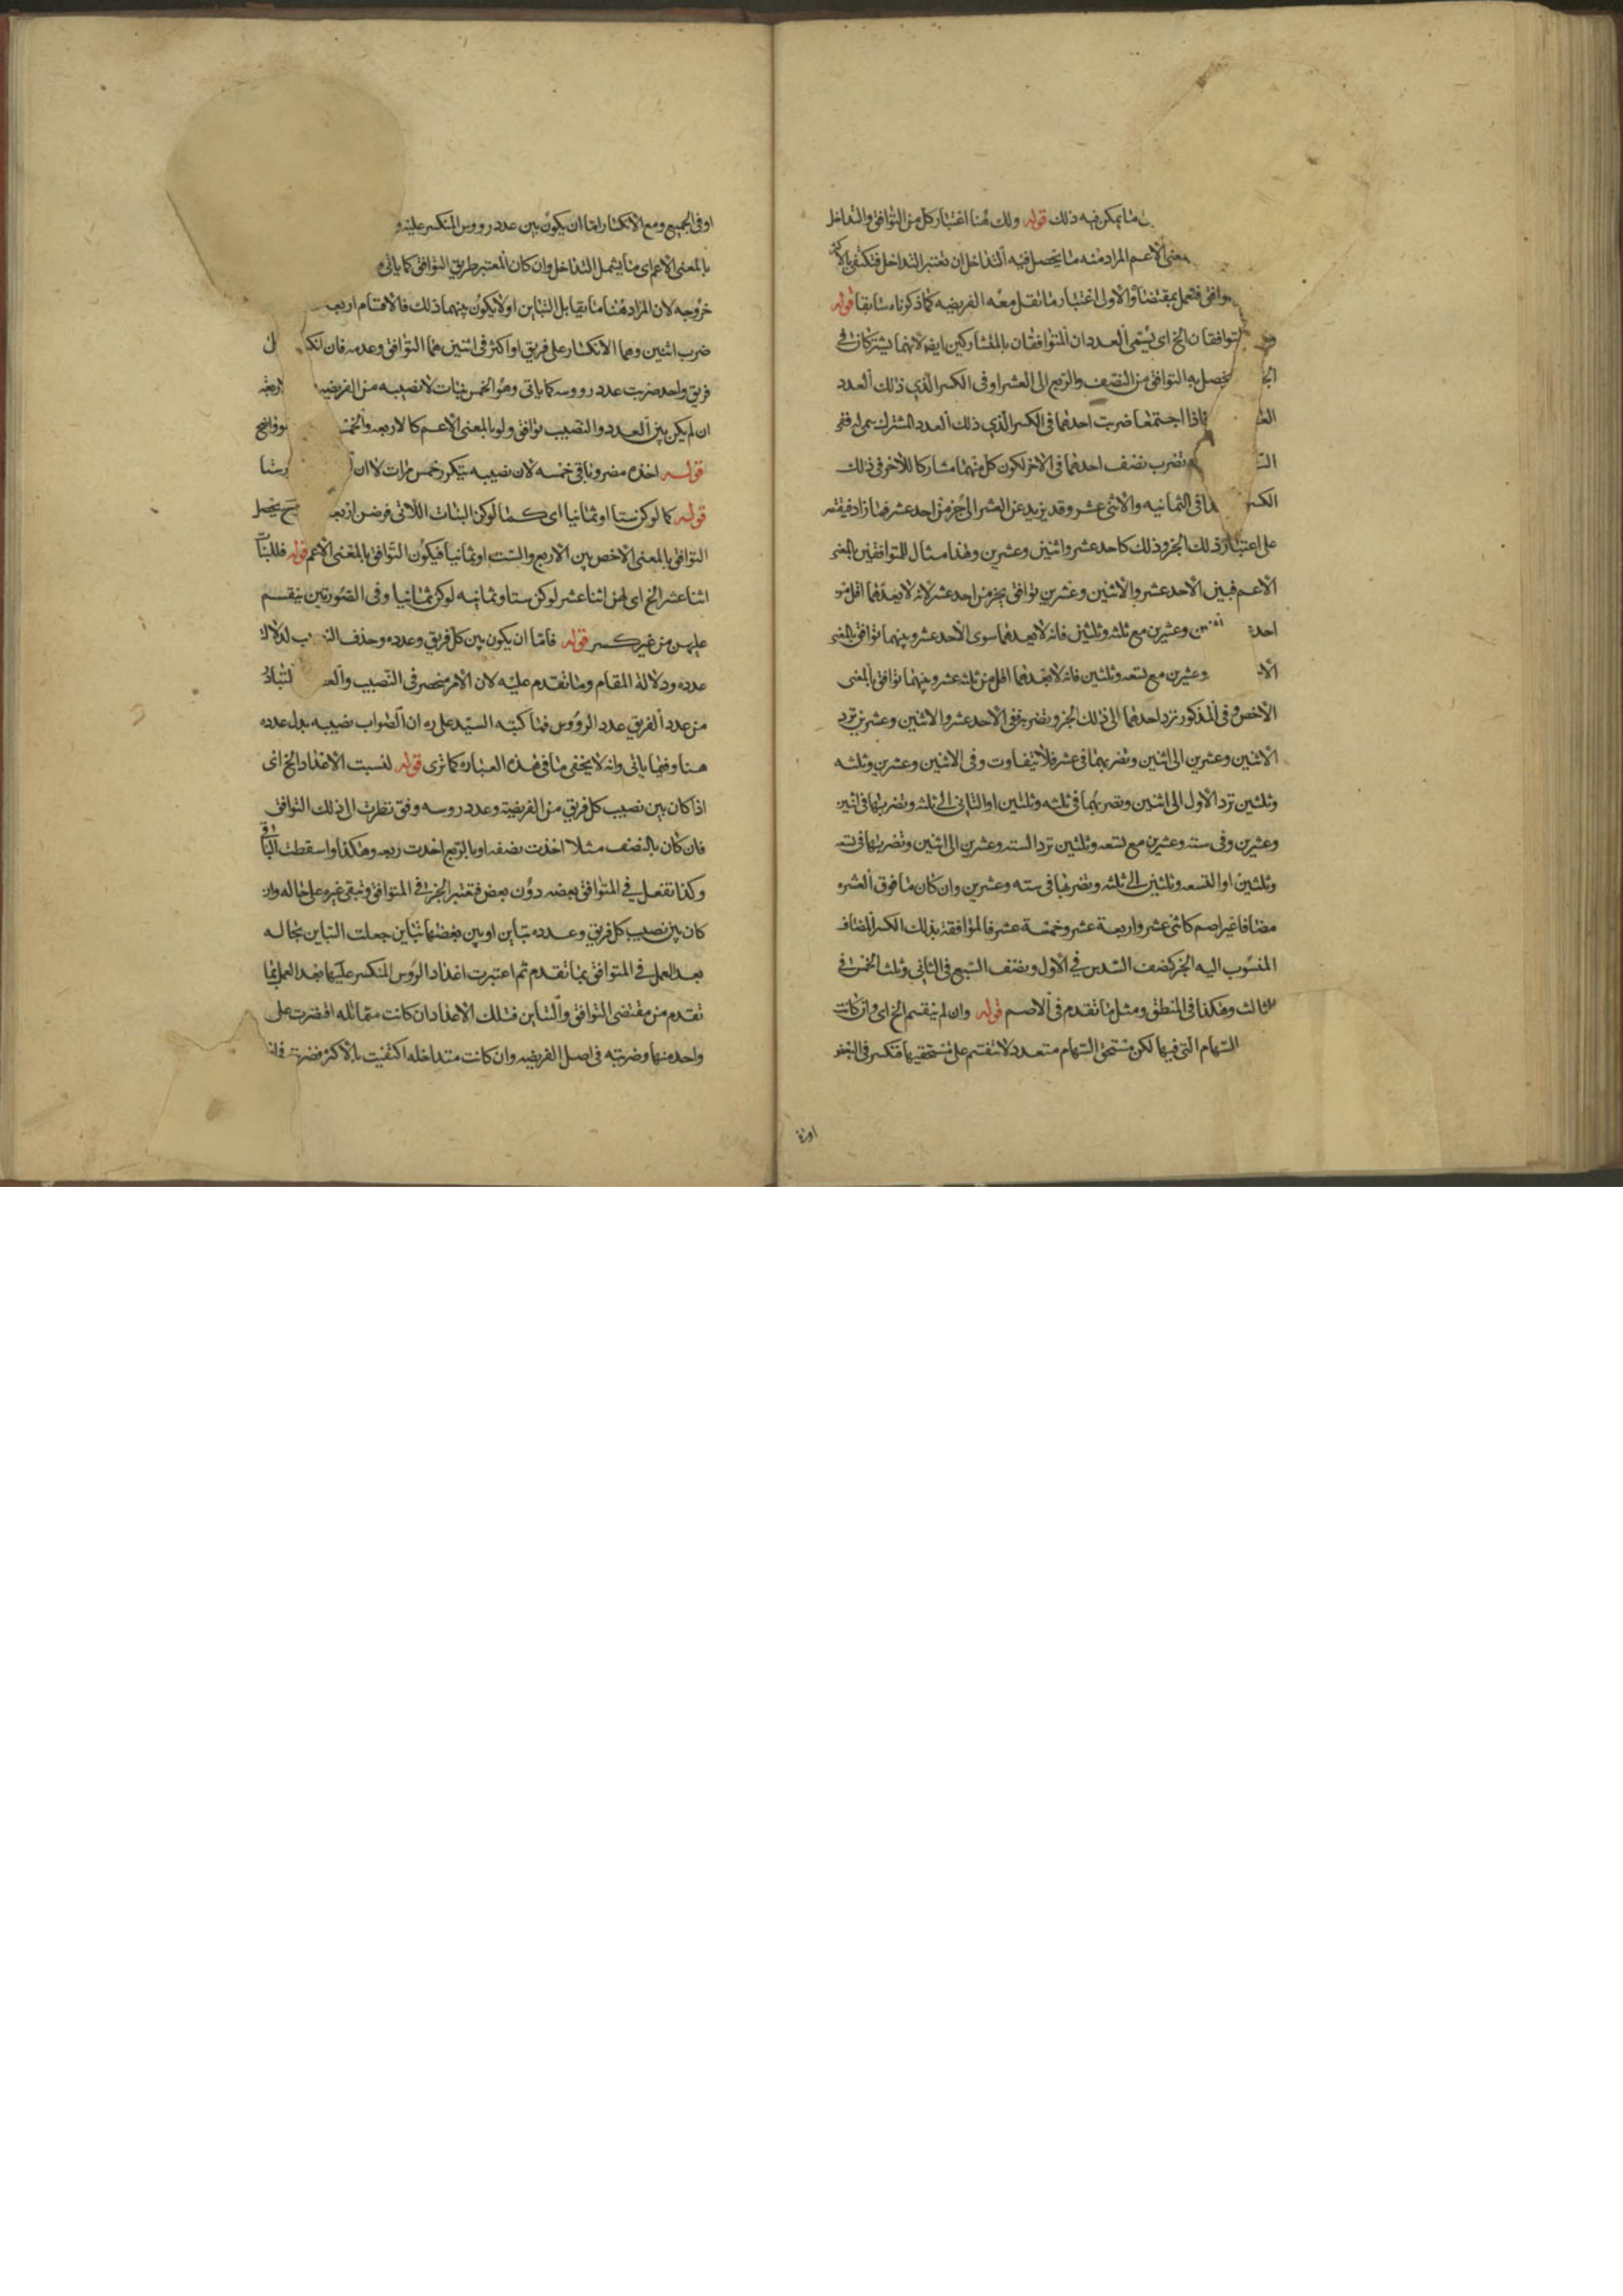 ما يمكن فيه ذلك قوله ولك هنا اعتبار كل من التوافق والتداخل
معنى الاعم المراد منه ما يحصل فيه التداخل ان تعتبر التداخل فتكتفى بالاكثر
فتعمل بمقتضاه والاولى اعتبار ما تقل معه الفريضه كما ذكرناه سابقا قوله
المتوافقان الخ اى يسمى العددان المتوافقان بالمتشاركين ايضا لانهما يشتركان فى
يحصل به التوافق من النصف والربع الى العشر او فى الكسر الذي ذلك العدد
فاذا اجتمعا ضربت احدهما فى الكسر الذي ذلك العدد المشترك
تضرب نصف احدهما فى الاخر لكون كل منهما مشاركا للاخر فى ذلك
الكسر فى الثمانيه والاثنى عشر وقد يزيد عن العشر الى جزء من احد عشر فما زاد فيقتصر
على اعتبار ذلك الجزء وذلك كاحد عشر واثنين وعشرين وهذا مثال للمتوافقين بالمعنى
الاعم فبين الاحد عشر والاثنين وعشرين توافق بجزء من احد عشر لانه لا يعدهما اقل من
احد وعشرين مع ثلثه وثلثين فانه لا يعدهما سوى الاحد عشر وبينهما توافق بالمعنى
وعشرين مع تسعه وثلثين فانه لا يعدهما اقل من ثلثه عشر وبينهما توافق بالمعنى
الاخص وفى المذكور ترد احدهما الى ذلك الجزء وتضربه ففى الاحد عشر والاثنين وعشرين ترد
الاثنين وعشرين الى اثنين وتضربهما فى عشر فلا يتفاوت وفى الاثنين وعشرين وثلثه
وثلثين ترد الاول الى اثنين وتضربهما فى ثلثه وثلثين او الثانى الى ثلثه وتضربها فى اثنين
وعشرين وفى سته وعشرين مع تسعه وثلثين ترد السته وعشرين الى اثنين وتضربهما فى تسعه
وثلثين او التسعه وثلثين الى ثلثه وتضربها فى سته وعشرين وان كان ما فوق العشره
مضافا غير اصم كاثنى عشر واربعة عشر وخمسة عشر فالموافقة بذلك الكسر المضاف
المنسوب اليه الجزء كنصف السدس فى الاول ونصف السبع فى الثانى وثلث الخمس فى
الثالث وهكذا فى المنطق ومثل ما تقدم فى الاصم قوله وان لم ينقسم الخ اى وان كانت
السهام التى فيها لكن مستحق السهام متعدد لا تنقسم على مستحقيها فتكسر فى البعض
او فى الجميع ومع الانكسار اما ان يكون بين عدد رووس المنكسر عليه و
بالمعنى الاعم اى ما يشمل التداخل وان كان المعتبر طريق التوافق كما ياتى
خروجه لان المراد هنا ما يقابل التباين او لا يكون بينهما ذلك فالاقسام اربعه
ضرب اثنين وهما الانكسار على فريق او اكثر فى اثنين هما التوافق وعدمه فان انكسر
فريق واحد ضربت عدد رووسه كما ياتى وهو الخمس بنات لا نصيبه من الفريضه اربعه
ان لم يكن بين العدد والنصيب توافق ولو بالمعنى الاعم كالاربعه والخمسه
قوله اخذه مضروبا فى خمسه لان نصيبه يتكرر خمس مرات لا ان
قوله كما لو كن ستا او ثمانيا اى كما لو كن البنات اللاتى فرضن اربعه
التوافق بالمعنى الاخص بين الاربع والست او ثمانيا فيكون التوافق بالمعنى الاعم قوله فللبنات
اثنا عشر الخ اى لهن اثنا عشر لو كن ستا وثمانيه لو كن ثمانيا وفى الصورتين ينقسم
عليهن من غير كسر قوله فاما ان يكون بين كل فريق وعدده وحذف لدلاله
عدده ودلالة المقام وما تقدم عليه لان الامر منحصر فى النصيب والعدد
من عدد الفريق عدد الرووس فما كتبه السيد على ره ان الصواب نصيبه بدل عدده
هنا وفيما ياتى وانه لا يخفى ما فى هذه العباره كما ترى قوله لنسبت الاعداد الخ اى
اذا كان بين نصيب كل فريق من الفريضة وعدد روسه وفق نظرت الى ذلك التوافق
فان كان بالنصف مثلا اخذت نصفه او بالربع اخذت ربعه وهكذا واسقطت الباقى
وكذا تفعل فى المتوافق بعضه دون بعض فتعتبر الجزء فى المتوافق وتبقى غيره على حاله وان
كان بين نصيب كل فريق وعدده تباين او بين بعضها تباين جعلت التباين بحاله
بعد العمل فى المتوافق بما تقدم ثم اعتبرت اعداد الروس المنكسر عليها بعد العمل بما
تقدم من مقتضى التوافق والتباين فتلك الاعداد ان كانت متماثله اقتصرت على
واحد منها وضربته فى اصل الفريضه وان كانت متداخله اكتفيت بالاكثر فضربته